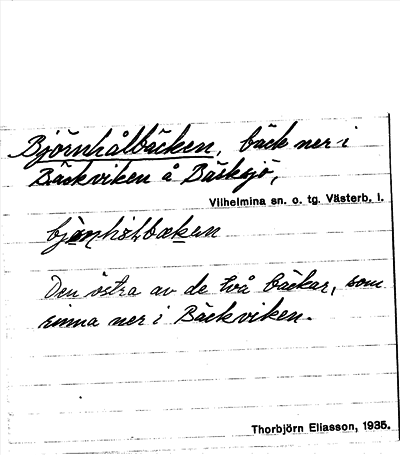 Björnhålbäcken, bäck ner i
Bäckviken å Bäsksjö,
Vilhelmina sn. o. tg. Västerb. l.
Den östra av de två bäckar, som
rinna ner i Bäckviken.
Thorbjörn Eliasson, 1935.